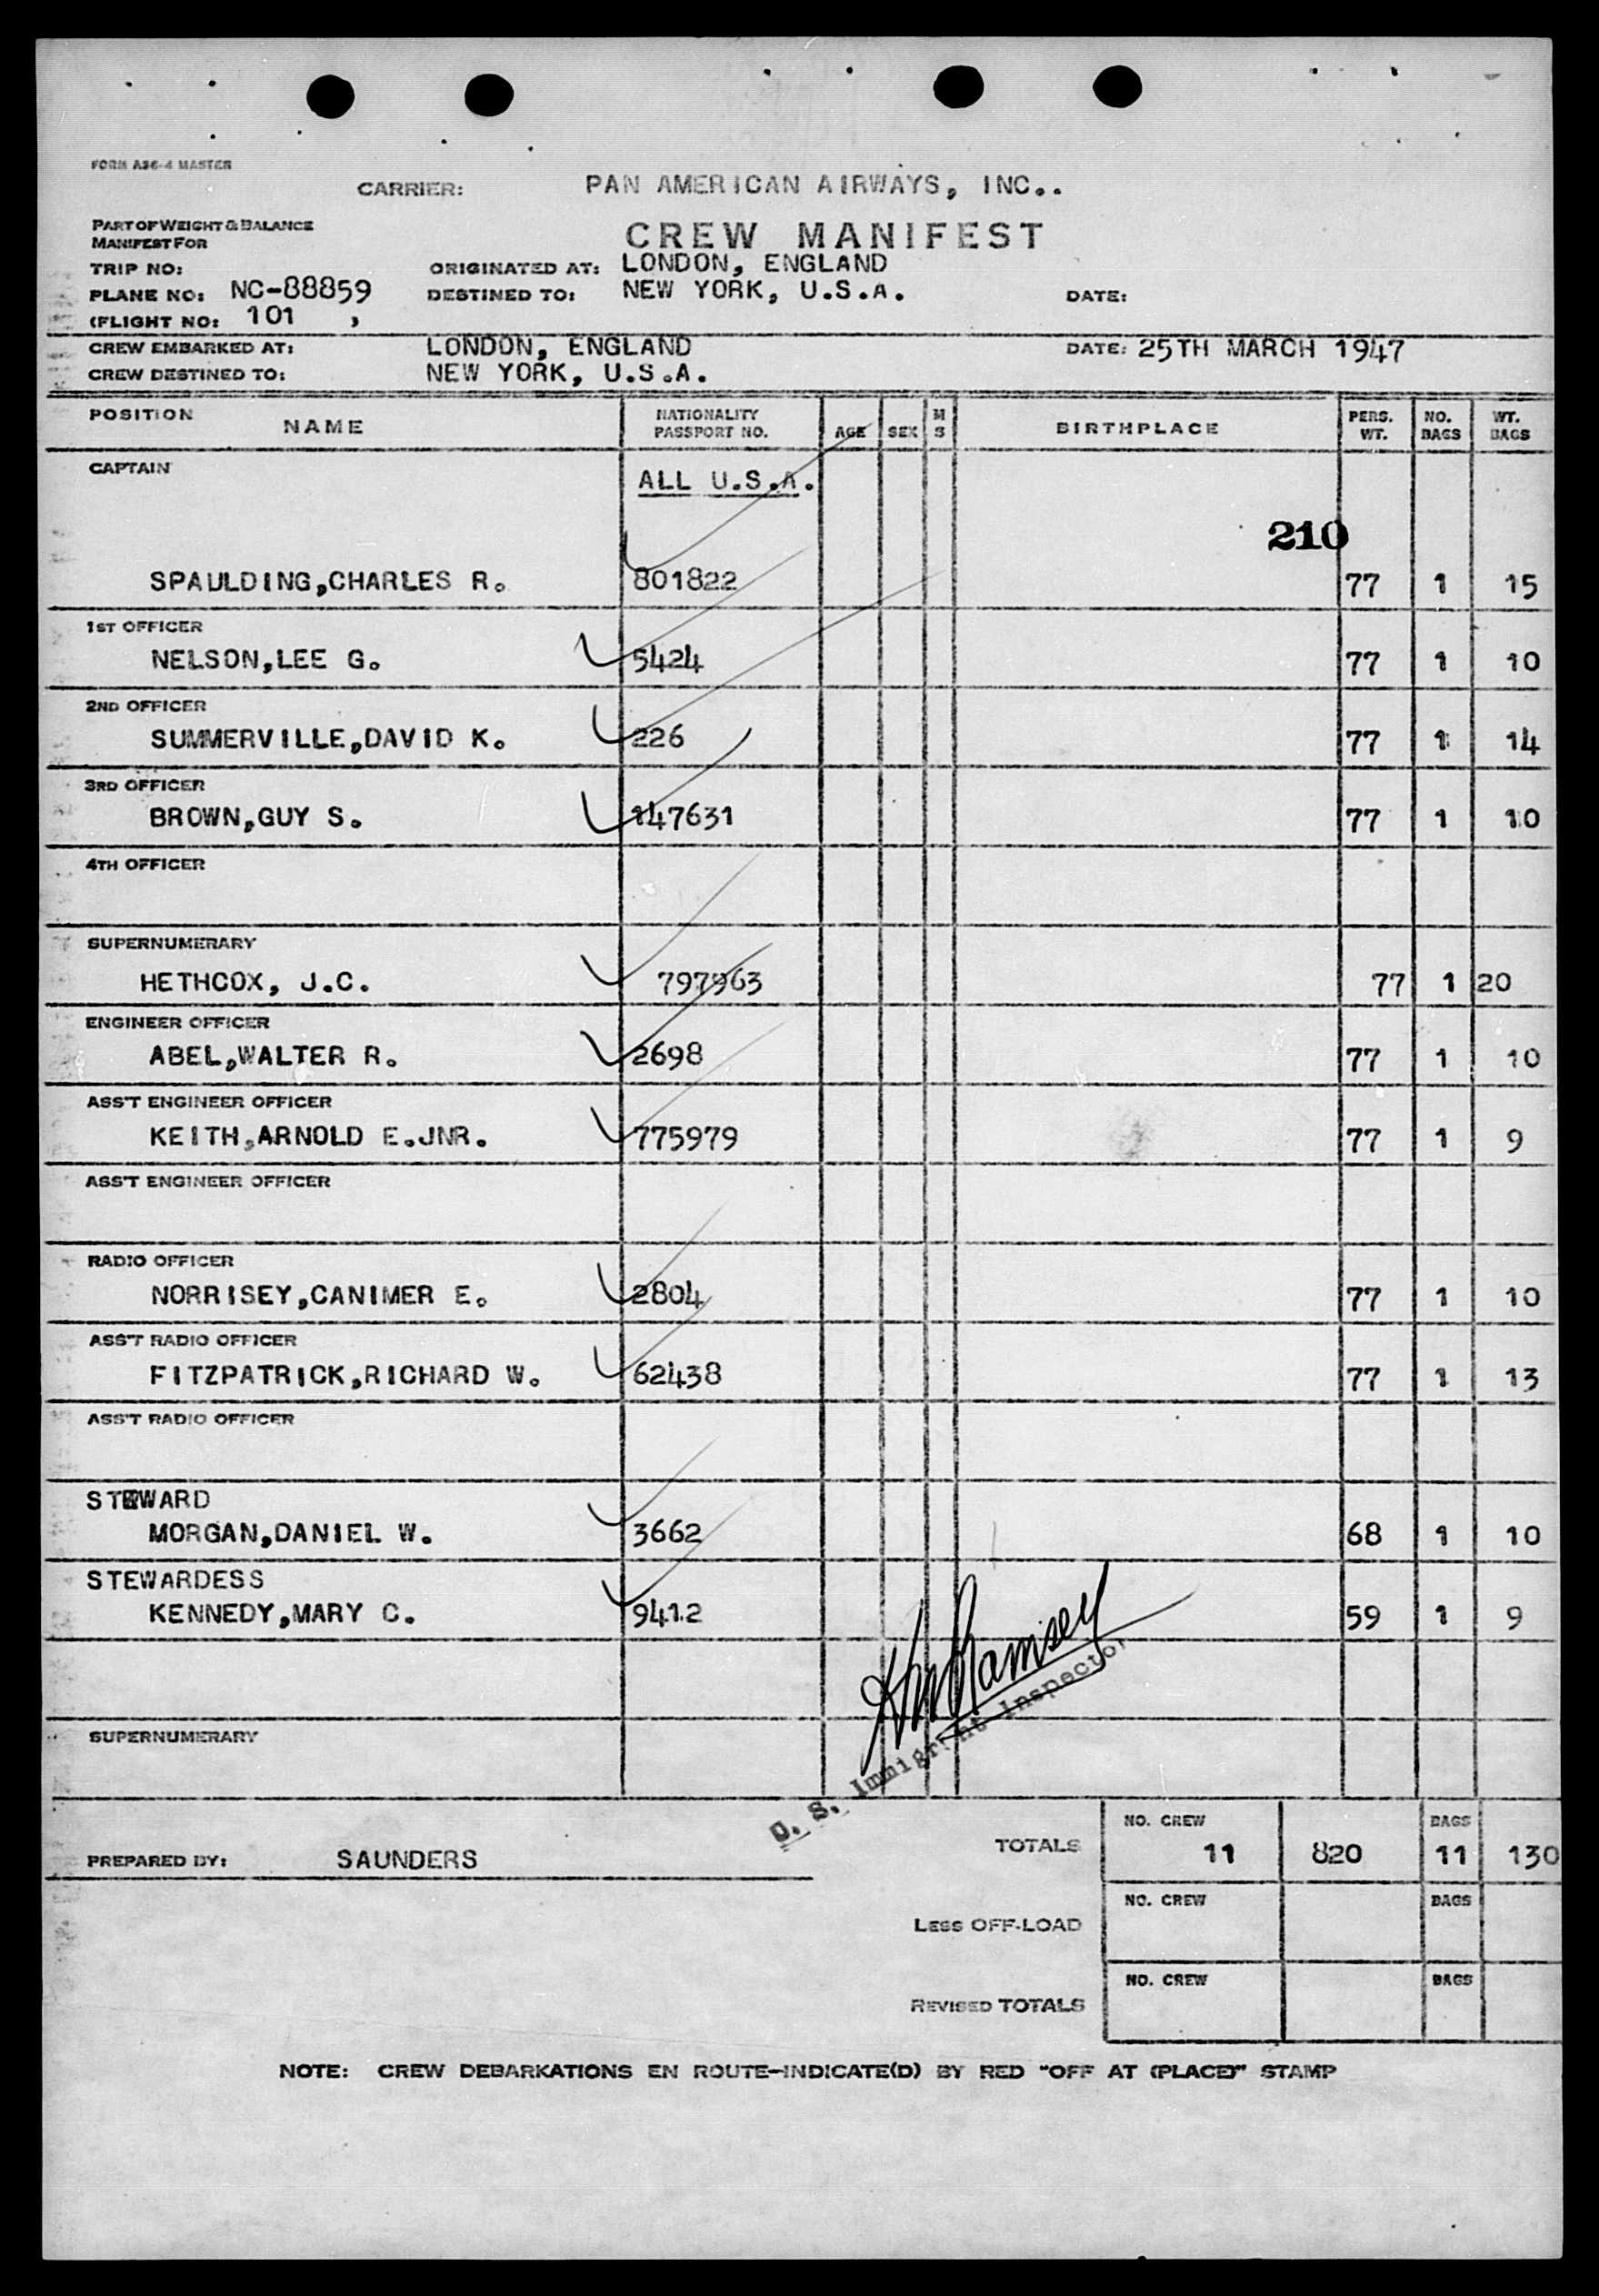 FORM A26-4 MASTER
CARRIER: PAN AMERICAN AIRWAYS, INC..
PART OF WEIGHT & BALANCE
MANIFEST FOR
CREW MANIFEST
TRIP NO: ORIGINATED AT: LONDON, ENGLAND
PLANE NO: NC-88859 DESTINED TO: NEW YORK, U.S.A. DATE:
(FLIGHT NO: 101 )
CREW EMBARKED AT: LONDON, ENGLAND DATE: 25TH MARCH 1947
CREW DESTINED TO: NEW YORK, U.S.A.
POSITION NAME NATIONALITY PASSPORT NO. AGE SEX M S BIRTHPLACE PERS. WT. NO. BAGS WT. BAGS
CAPTAIN
ALL U.S.A.
210
SPAULDING,CHARLES R. 801822 77 1 15
1ST OFFICER
NELSON,LEE G. 5424 77 1 10
2ND OFFICER
SUMMERVILLE,DAVID K. 226 77 1 14
3RD OFFICER
BROWN,GUY S. 147631 77 1 10
4TH OFFICER
SUPERNUMERARY
HETHCOX, J.C. 797963 77 1 20
ENGINEER OFFICER
ABEL,WALTER R. 2698 77 1 10
ASS'T ENGINEER OFFICER
KEITH,ARNOLD E.JNR. 775979 77 1 9
ASS'T ENGINEER OFFICER
RADIO OFFICER
NORRISEY,CANIMER E. 2804 77 1 10
ASS'T RADIO OFFICER
FITZPATRICK,RICHARD W. 62438 77 1 13
ASS'T RADIO OFFICER
STEWARD
MORGAN,DANIEL W. 3662 68 1 10
STEWARDESS
KENNEDY,MARY C. 9412 59 1 9
Ramsey
U. S. Immigrant Inspector
SUPERNUMERARY
PREPARED BY: SAUNDERS
TOTALS NO. CREW 11 820 BAGS 11 130
LESS OFF-LOAD NO. CREW BAGS
REVISED TOTALS NO. CREW BAGS
NOTE: CREW DEBARKATIONS EN ROUTE-INDICATE(D) BY RED "OFF AT (PLACE)" STAMP